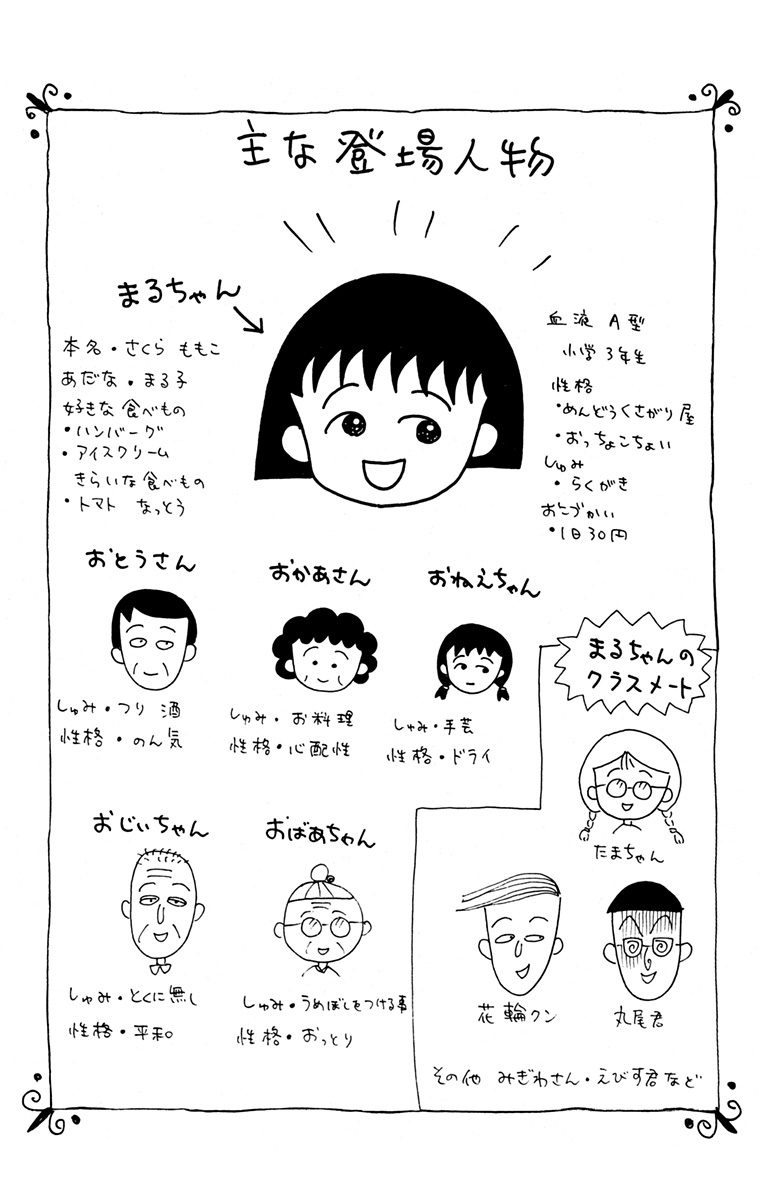 主な登場人物
まるちゃん
本名・さくら ももこ
あだな・まる子
好きな食べもの
・ハンバーグ
・アイスクリーム
きらいな食べもの
・トマト なっとう
血液 A型
小学3年生
性格
・めんどうくさがり屋
・おっちょこちょい
しゅみ
・らくがき
おこづかい
・1日30円
おとうさん
しゅみ・つり 酒
性格・のん気
おかあさん
しゅみ・お料理
性格・心配性
おねえちゃん
しゅみ・手芸
性格・ドライ
おじいちゃん
しゅみ・とくに無し
性格・平和
おばあちゃん
しゅみ・うめぼしをつける事
性格・おっとり
まるちゃんの
クラスメート
たまちゃん
花輪クン
丸尾君
その他 みぎわさん・えびす君など